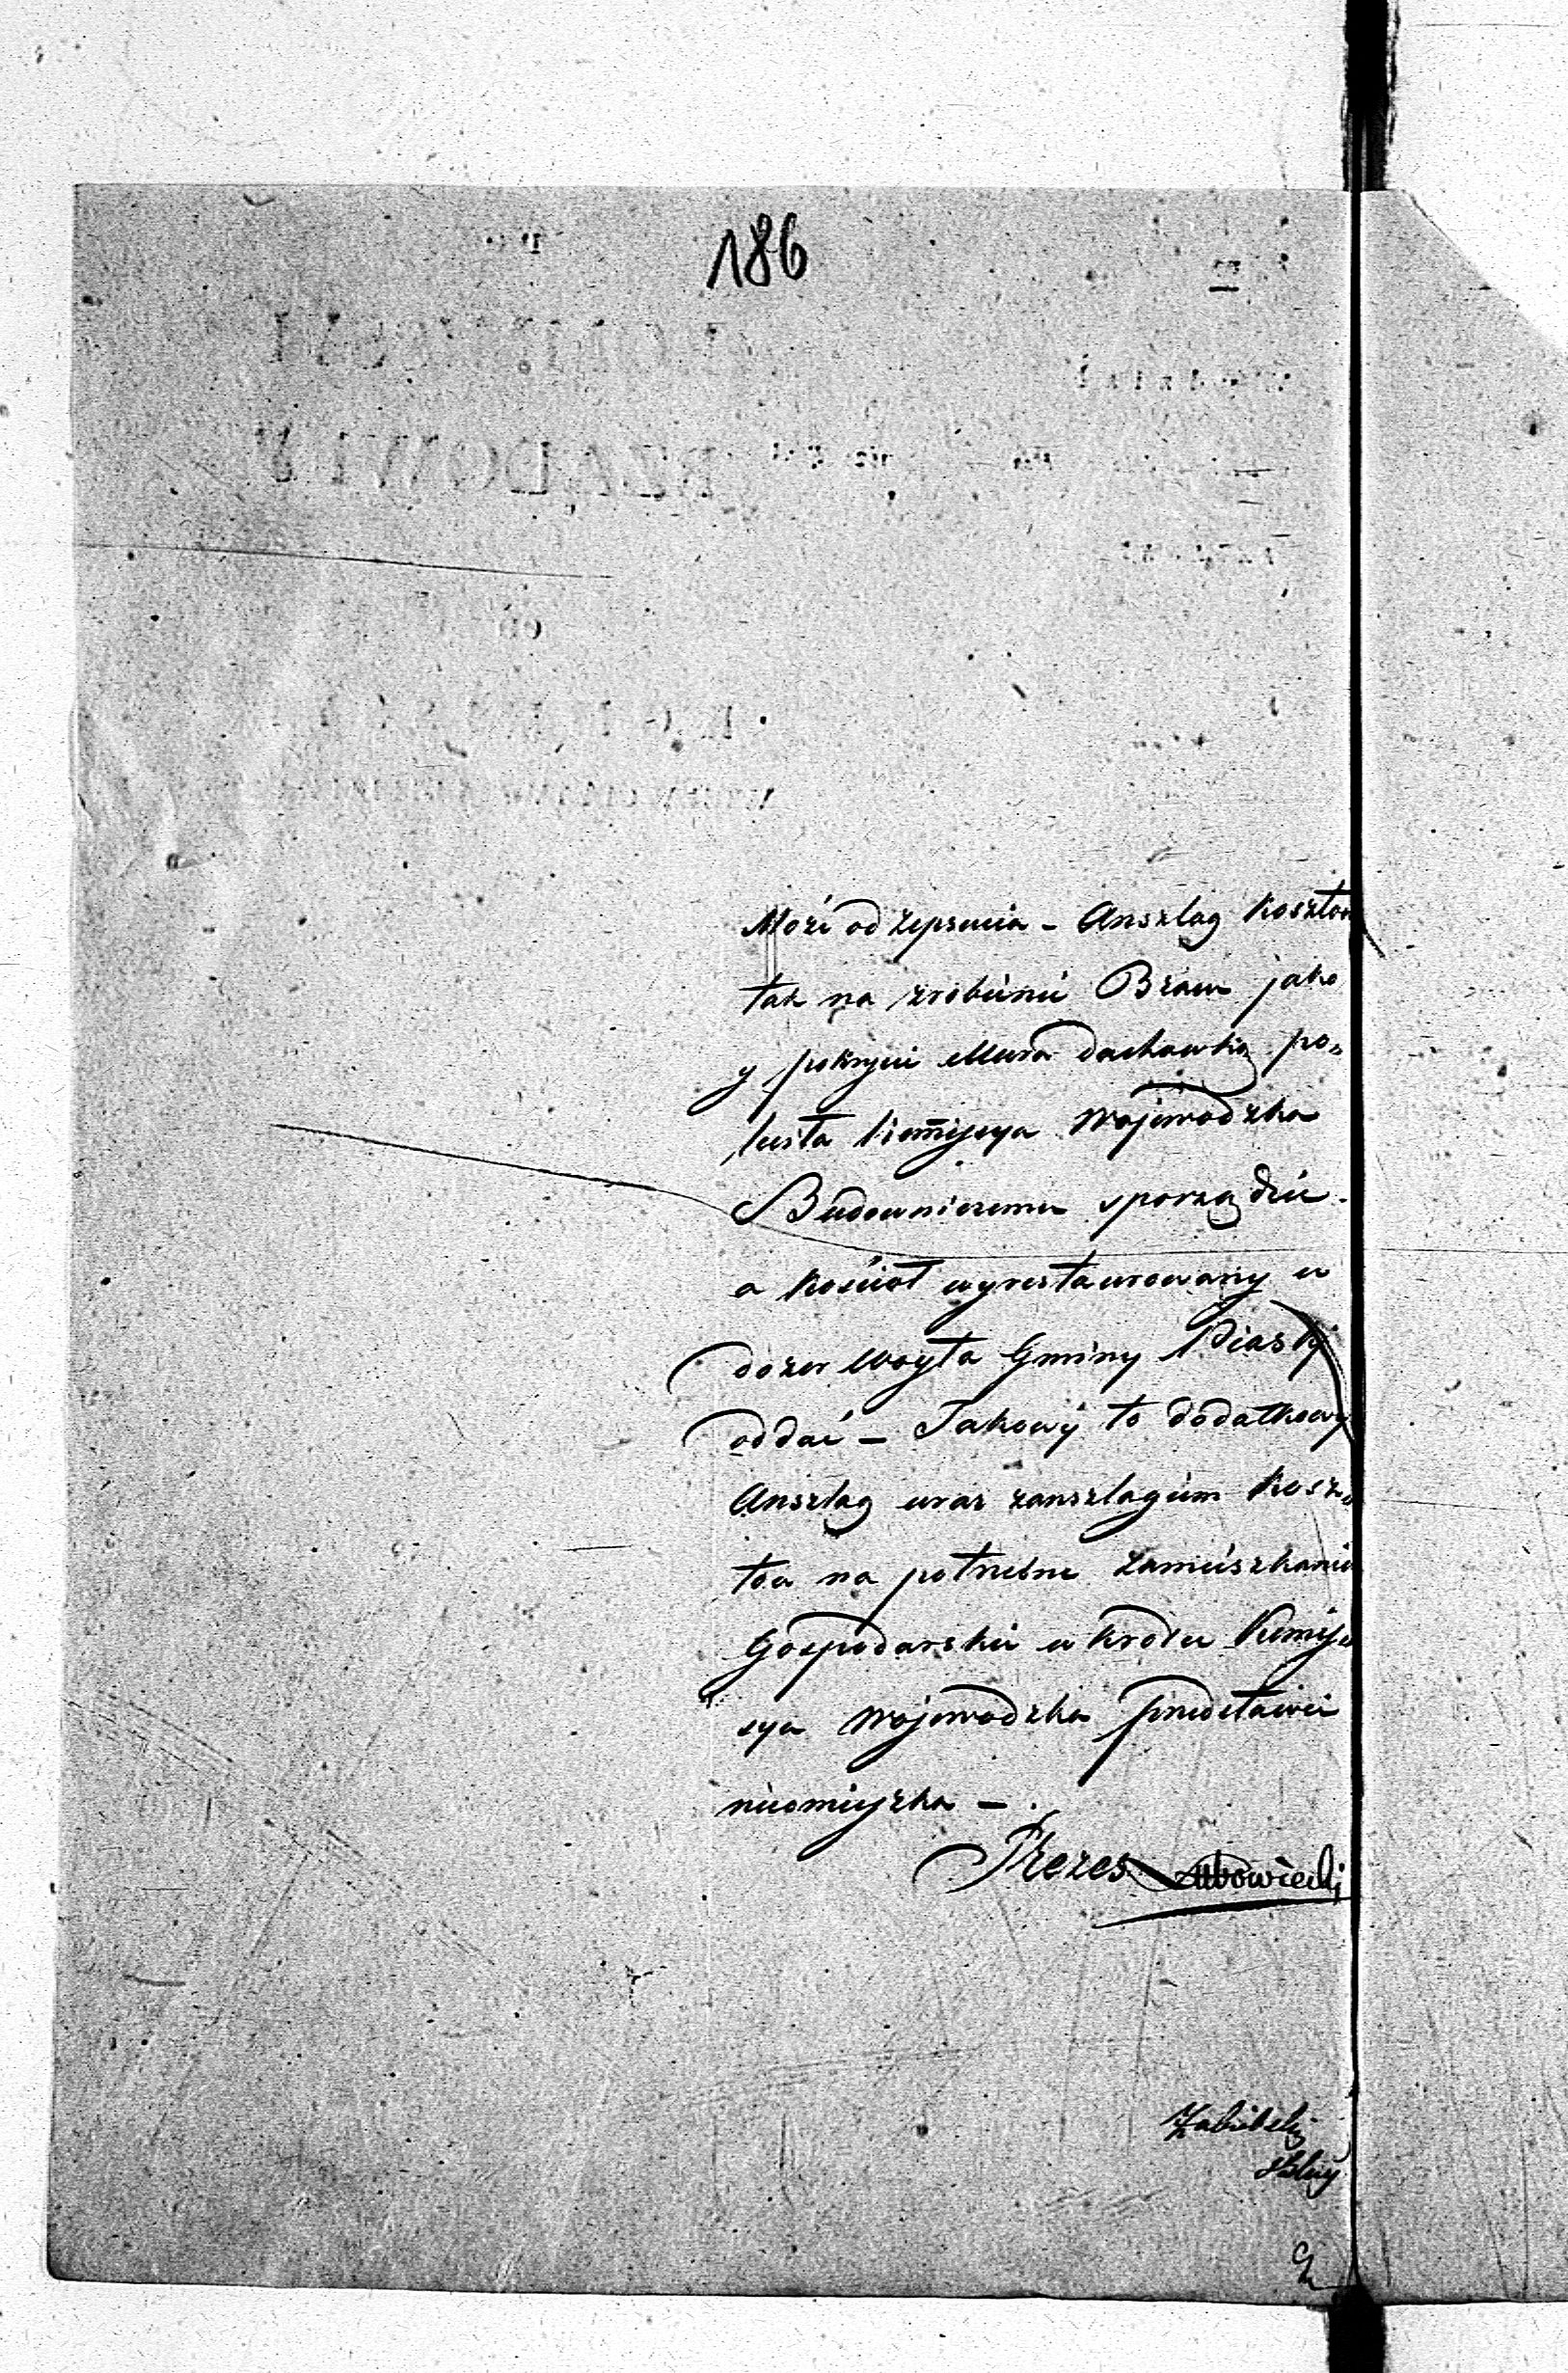 186
Może od zepsucia – Anszlag Kosztow
tak na zrobienie Bram jako
y pokrycie Muru dachowką po=
lecita Kommissya Wojewodzka
Budowniczemu sporządzić.
a Kościoł wyrestaurowany w
dozor Woyta Gminy Piaski
oddać – Takowy to dodatkowy
Anszlag wraz zanszlagiem Kosz=
tow na potrzebne zamieszkanie
Gospodarskie w krotce Kommis=
sya Wojewodzka przedstawić
nieomieszka –
Prezes Lubowiecki